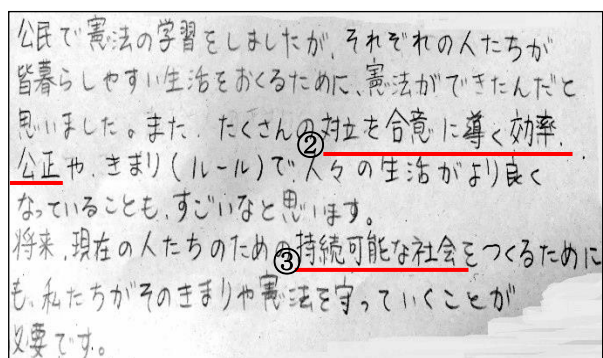 公民で憲法の学習をしましたが、それぞれの人たちが
皆暮らしやすい生活をおくるために、憲法ができたんだと
思いました。また、たくさんの②対立を合意に導く効率、
公正や、きまり(ルール)で、人々の生活がより良く
なっていることも、すごいなと思います。
将来、現在の人たちのための③持続可能な社会をつくるために
も、私たちがそのきまりや憲法を守っていくことが
必要です。